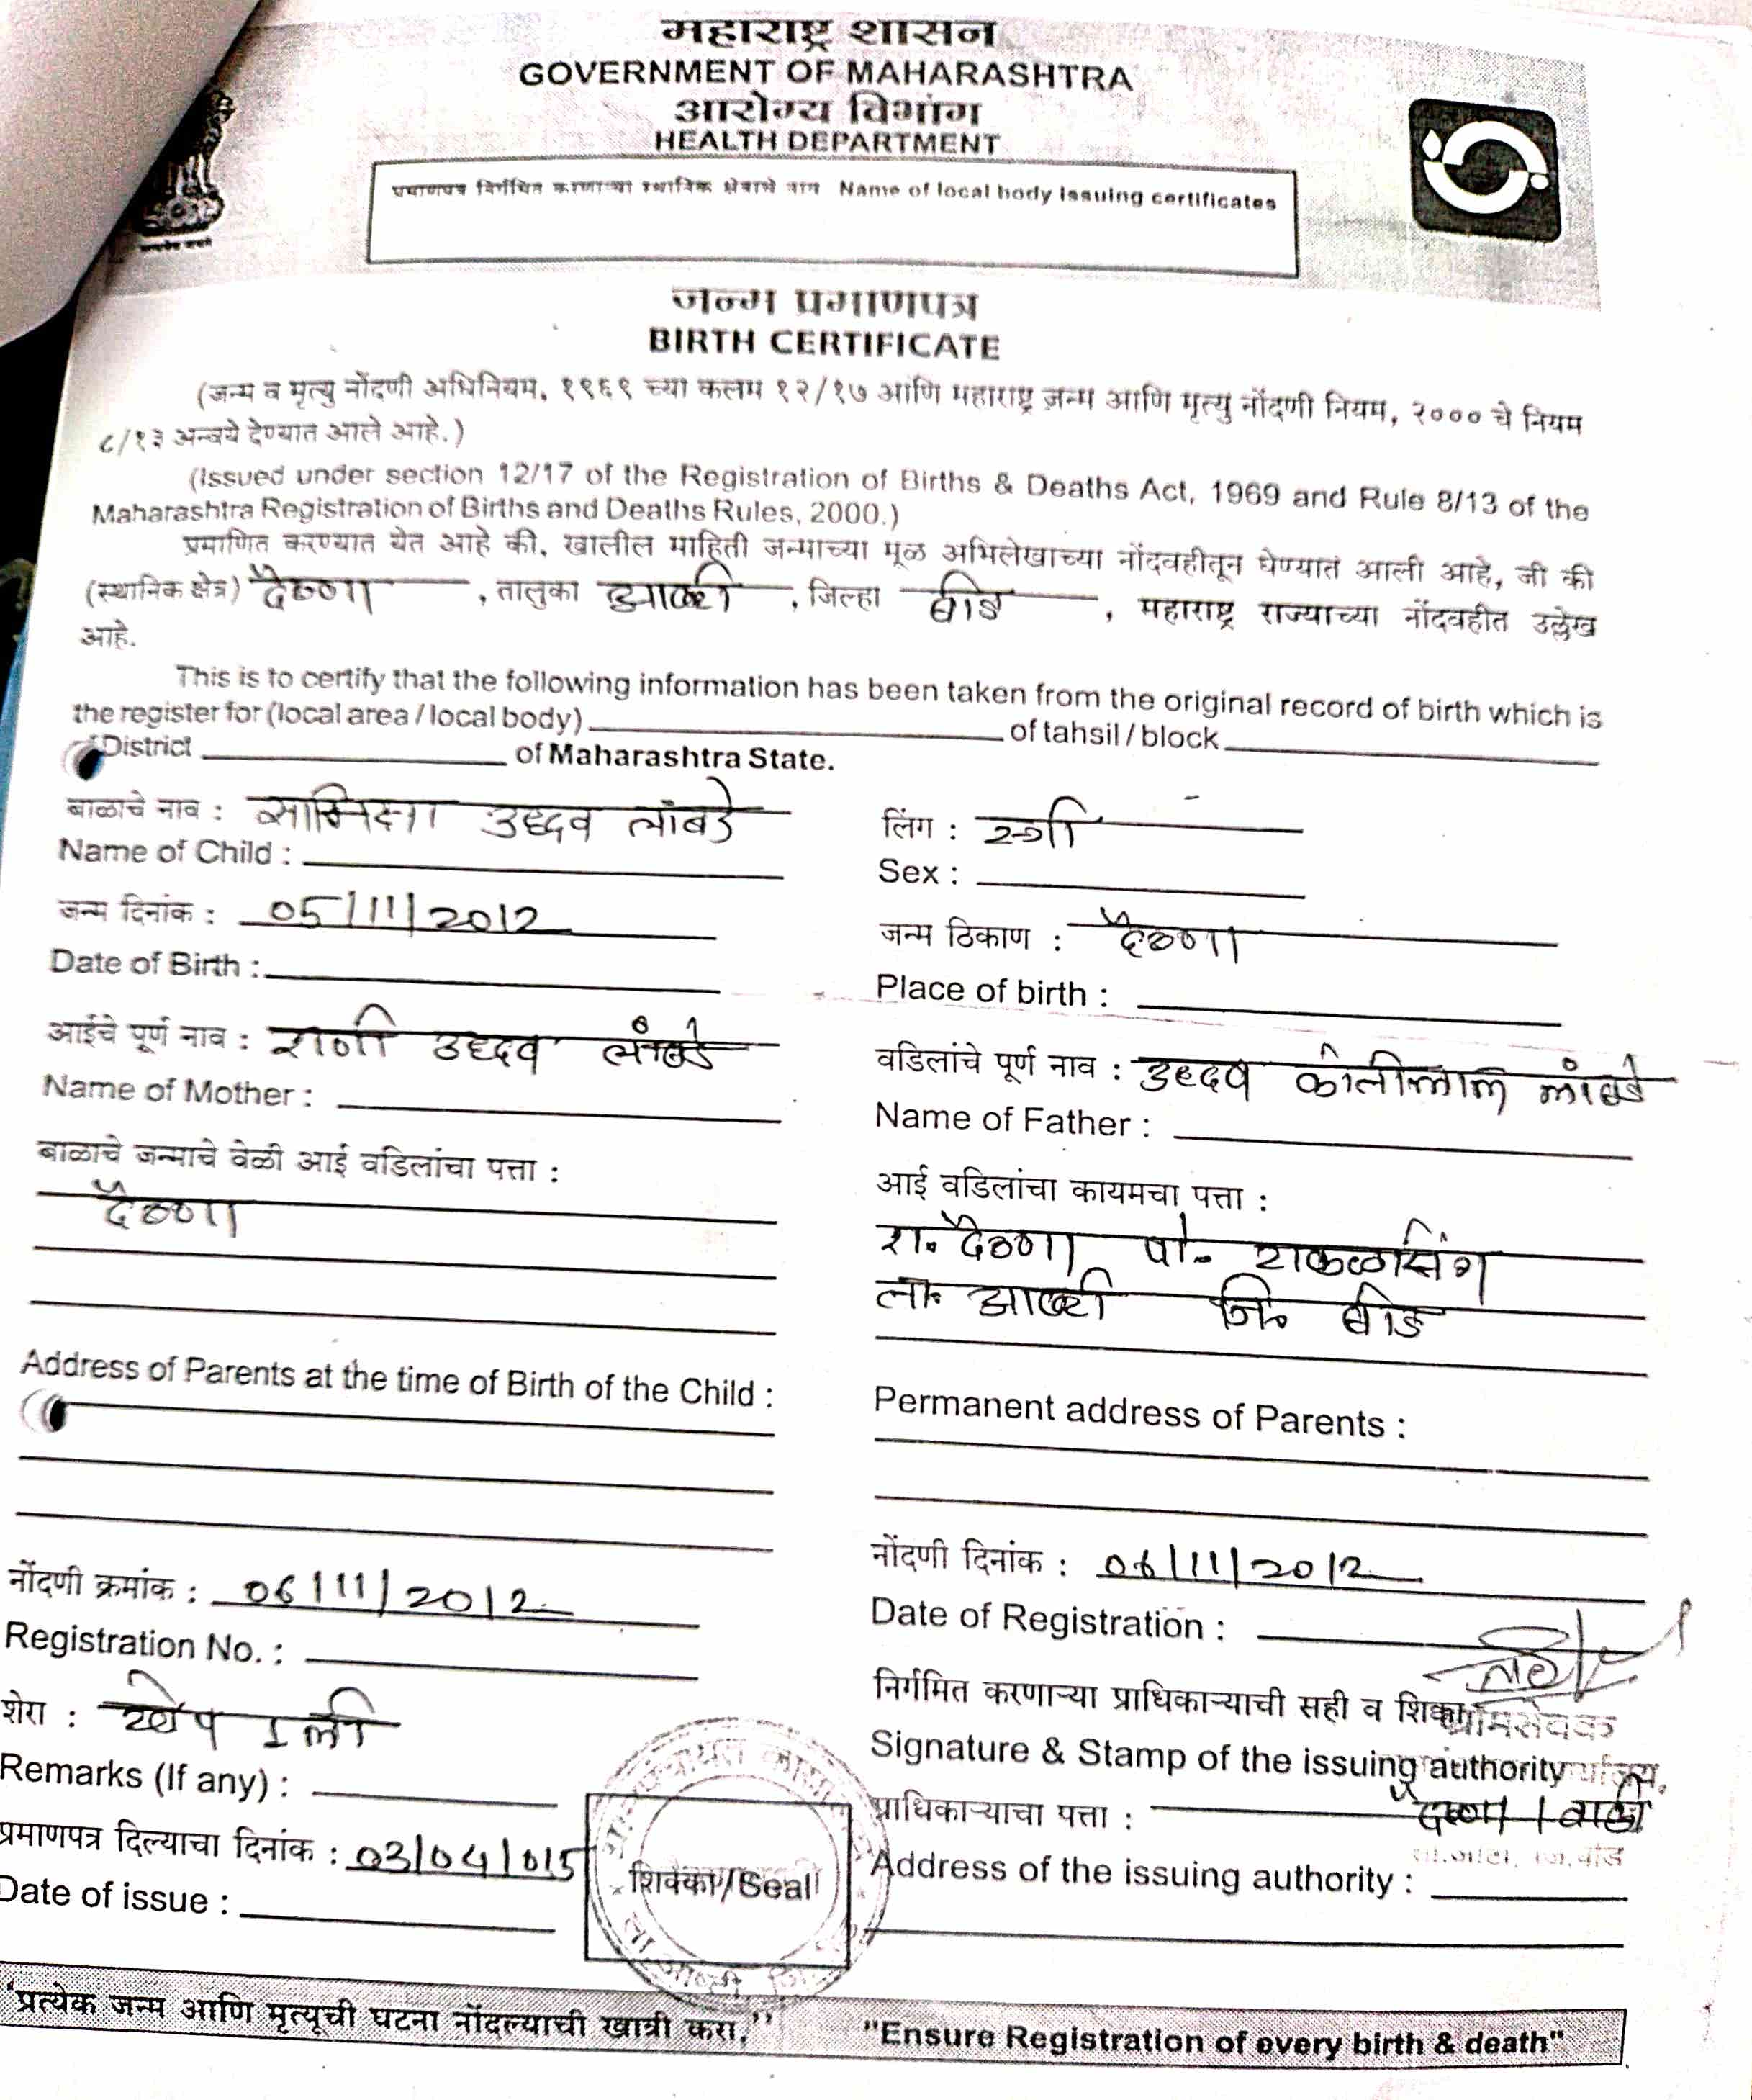 महाराष्ट्र शासन
GOVERNMENT OF MAHARASHTRA
आरोग्य विभांग
HEALTH DEPARTMENT
प्रमाणपत्र निर्गमित करणाऱ्या स्थानिक क्षेत्राचे नाव Name of local body issuing certificates
जन्म प्रमाणपत्र
BIRTH CERTIFICATE
(जन्म व मृत्यु नोंदणी अधिनियम, १९६९ च्या कलम १२/१७ आणि महाराष्ट्र जन्म आणि मृत्यु नोंदणी नियम, २००० चे नियम
८/१३ अन्वये देण्यात आले आहे.)
(Issued under section 12/17 of the Registration of Births & Deaths Act, 1969 and Rule 8/13 of the
Maharashtra Registration of Births and Deaths Rules, 2000.)
प्रमाणित करण्यात येत आहे की, खालील माहिती जन्माच्या मूळ अभिलेखाच्या नोंदवहीतून घेण्यात आली आहे, जी की
(स्थानिक क्षेत्र) दैठणा , तालुका आष्टी , जिल्हा बीड , महाराष्ट्र राज्याच्या नोंदवहीत उल्लेख
आहे.
This is to certify that the following information has been taken from the original record of birth which is
the register for (local area / local body) of tahsil / block
District of Maharashtra State.
बाळाचे नाव : सामिक्षा उध्दव लांबडे लिंग : स्त्री
Name of Child : Sex :
जन्म दिनांक : 05/11/2012 जन्म ठिकाण : दैठणा
Date of Birth : Place of birth :
आईचे पूर्ण नाव : राणी उध्दव लांबडे वडिलांचे पूर्ण नाव : उध्दव कांतीलाल लांबडे
Name of Mother : Name of Father :
बाळाचे जन्माचे वेळी आई वडिलांचा पत्ता : आई वडिलांचा कायमचा पत्ता :
दैठणा रा. दैठणा पो.
ता. आष्टी जि. बीड
Address of Parents at the time of Birth of the Child : Permanent address of Parents :
नोंदणी क्रमांक : 06/11/2012 नोंदणी दिनांक : 06/11/2012
Registration No. : Date of Registration :
शेरा : निर्गमित करणाऱ्या प्राधिकाऱ्याची सही व शिक्का
ग्रामसेवक
Remarks (If any) : Signature & Stamp of the issuing authority
प्रमाणपत्र दिल्याचा दिनांक : 03/04/015 प्राधिकाऱ्याचा पत्ता : दैठणा
ता.आष्टी, जि.बीड
शिक्का/Seal
Date of issue : Address of the issuing authority :
"प्रत्येक जन्म आणि मृत्यूची घटना नोंदल्याची खात्री करा." "Ensure Registration of every birth & death"